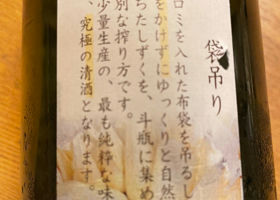 袋吊り
ロミを入れた布袋を吊るし
をかけずにゆっくりと自然
ちたしずくを、斗瓶に集め
別な搾り方です。
少量生産の、最も純粋な味
、究極の清酒となります。